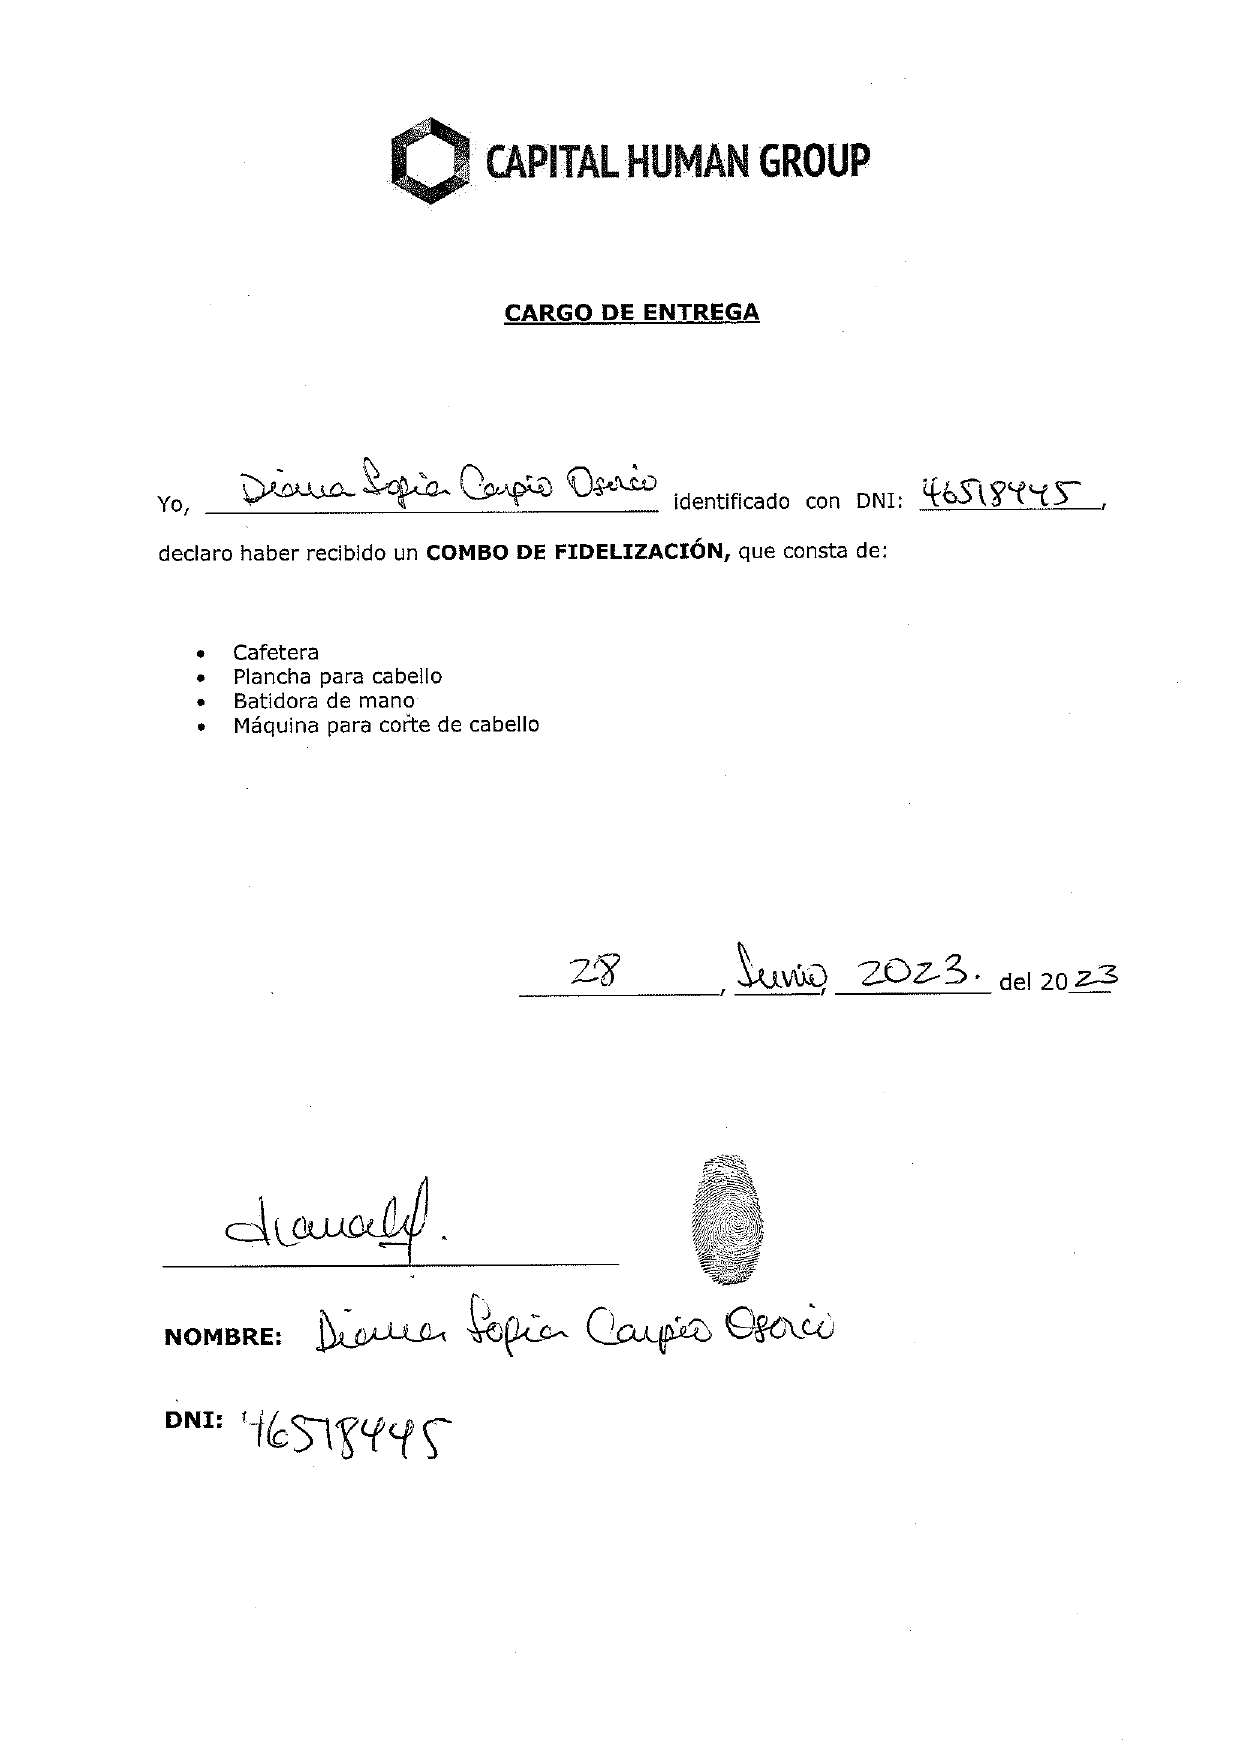 CAPITAL HUMAN GROUP
CARGO DE ENTREGA
Yo, Diana Sofia Carpio Osorio identificado con DNI: 46518445,
declaro haber recibido un COMBO DE FIDELIZACIÓN, que consta de:
• Cafetera
• Plancha para cabello
• Batidora de mano
• Máquina para corte de cabello
28, Junio, 2023. del 2023
NOMBRE: Diana Sofia Carpio Osorio
DNI: 46518445